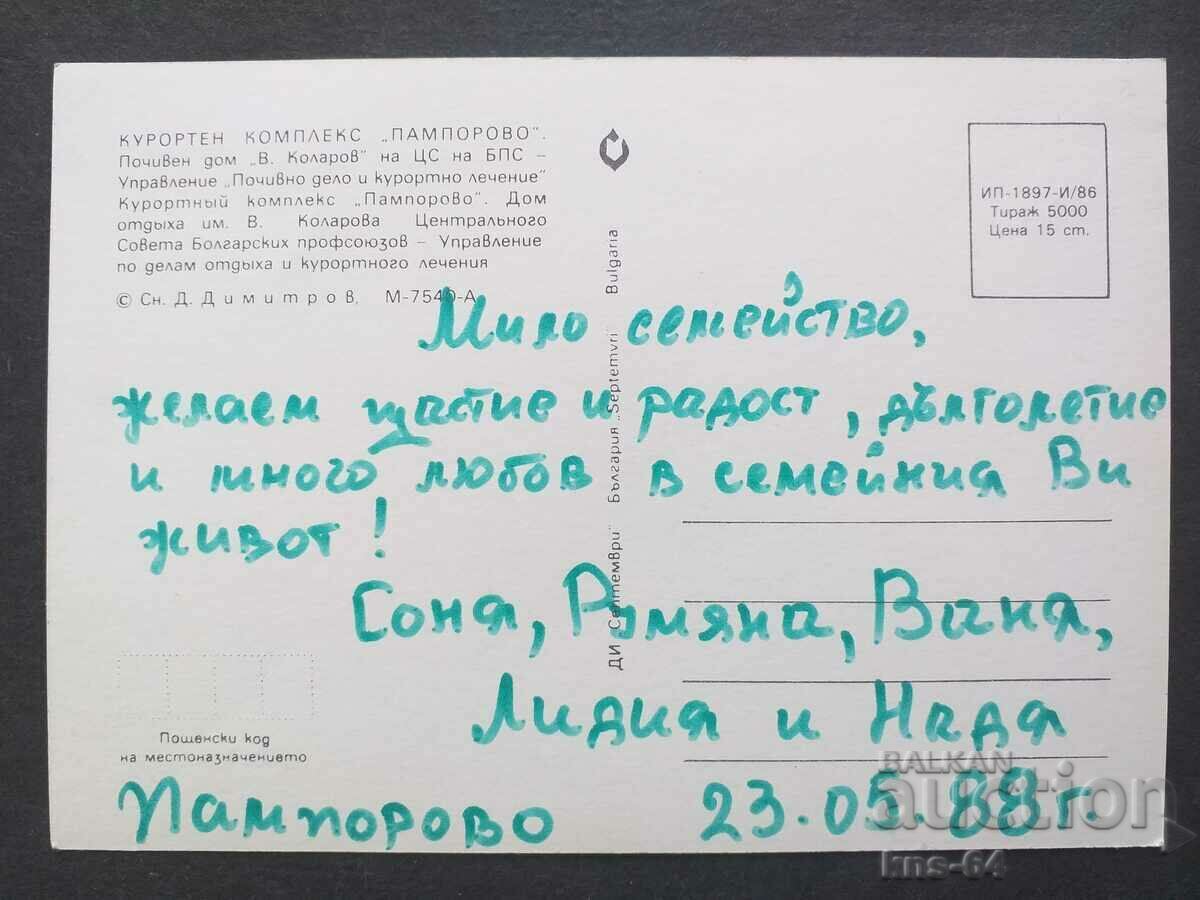 КУРОРТЕН КОМПЛЕКС „ПАМПОРОВО".
Почивен дом „В. Коларов" на ЦС на БПС –
Управление „Почивно дело и курортно лечение"
Курортный комплекс „Пампорово". Дом
отдыха им. В. Коларова Центрального
Совета Болгарских профсоюзов – Управление
по делам отдыха и курортного лечения
© Сн. Д. Димитров, М-7540-А
ИП-1897-И/86
Тираж 5000
Цена 15 ст.
ДИ „Септември" България „Septemvri" Bulgaria
Мило семейство,
желаем щастие и радост, дълголетие
и много любов в семейния Ви
живот!
Соня, Румяна, Ваня,
Лидия и Надя
Пощенски код
на местоназначението
Пампорово 23.05.88 г.
BALKAN
auction
kns-64